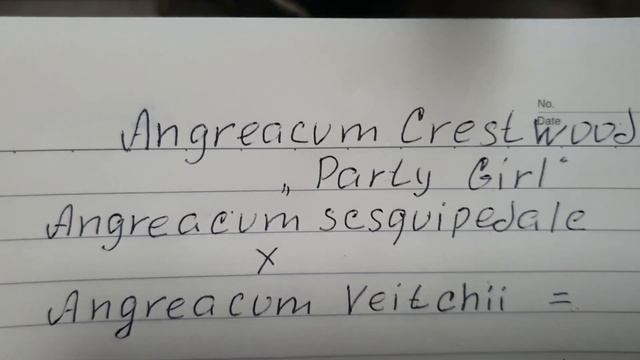 No.
Date
Angreacum Crestwood
„ Party Girl“
Angreacum sesquipedale
x
Angreacum Veitchii =